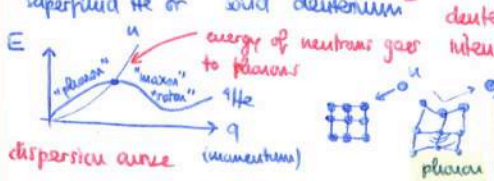 superfluid He or solid deuterium deute
E n energy of neutrons goes inten
to phonons
"phonon" "maxon" n
"roton" ⁴He
q
dispersion curve (momentum)
phonon